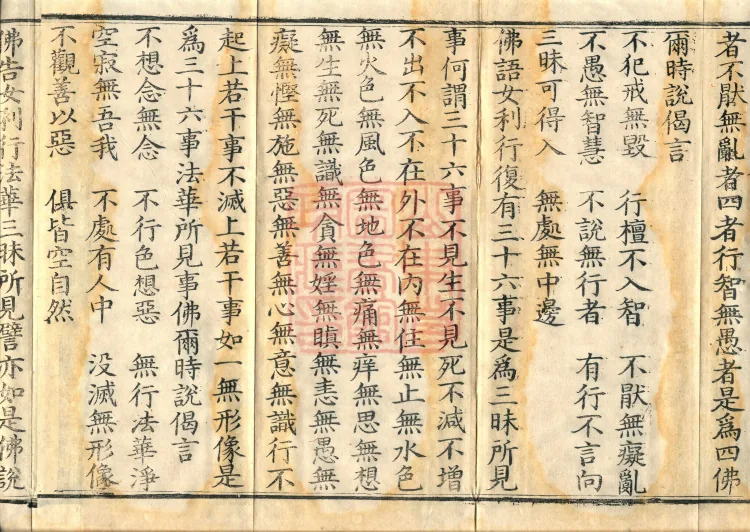 者不猒無亂者四者行智無愚者是爲四佛
爾時說偈言
不犯戒無毀　行檀不入智　不猒無癡亂
不愚無智慧　不說無行者　有行不言向
三昧可得入　無處無中邊
佛語女利行復有三十六事是爲三昧所見
事何謂三十六事不見生不見死不減不增
不出不入不在外不在內無住無止無水色
無火色無風色無地色無痛無痒無思無想
無生無死無識無貪無婬無瞋無恚無愚無
癡無慳無施無惡無善無心無意無識行不
起上若干事不滅上若干事如一無形像是
爲三十六事法華所見事佛爾時說偈言
不想念無念　不行色想惡　無行法華淨
空寂無吾我　不處有人中　沒滅無形像
不觀善以惡　俱皆空自然
佛告女利行法華三昧所見譬亦如是佛說